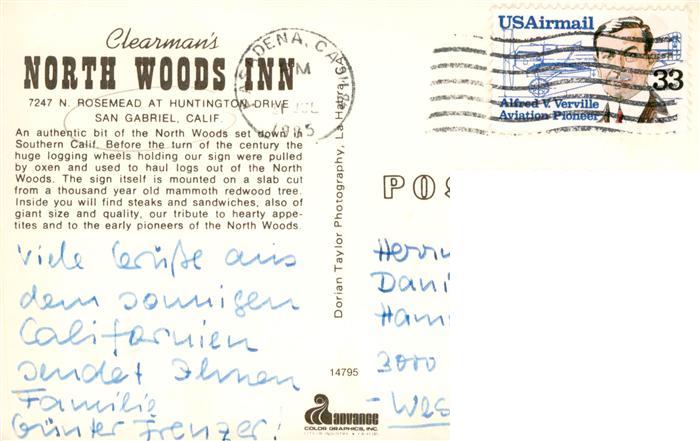 Clearman's
NORTH WOODS INN
7247 N. ROSEMEAD AT HUNTINGTON DRIVE
SAN GABRIEL, CALIF.
An authentic bit of the North Woods set down in
Southern Calif. Before the turn of the century the
huge logging wheels holding our sign were pulled
by oxen and used to haul logs out of the North
Woods. The sign itself is mounted on a slab cut
from a thousand year old mammoth redwood tree.
Inside you will find steaks and sandwiches, also of
giant size and quality, our tribute to hearty appe-
tites and to the early pioneers of the North Woods.
Viele Grüße aus
dem sonnigen
Californien
sendet Ihnen
Familie
Günter Frenzer!
PASADENA, CA
PM
1985
Dorian Taylor Photography, La Habra,
14795
advance
COLOR GRAPHICS, INC.
USAirmail
33
Alfred V. Verville
Aviation Pioneer
POS
Herrn
Dani
Hann
3000
- Wes